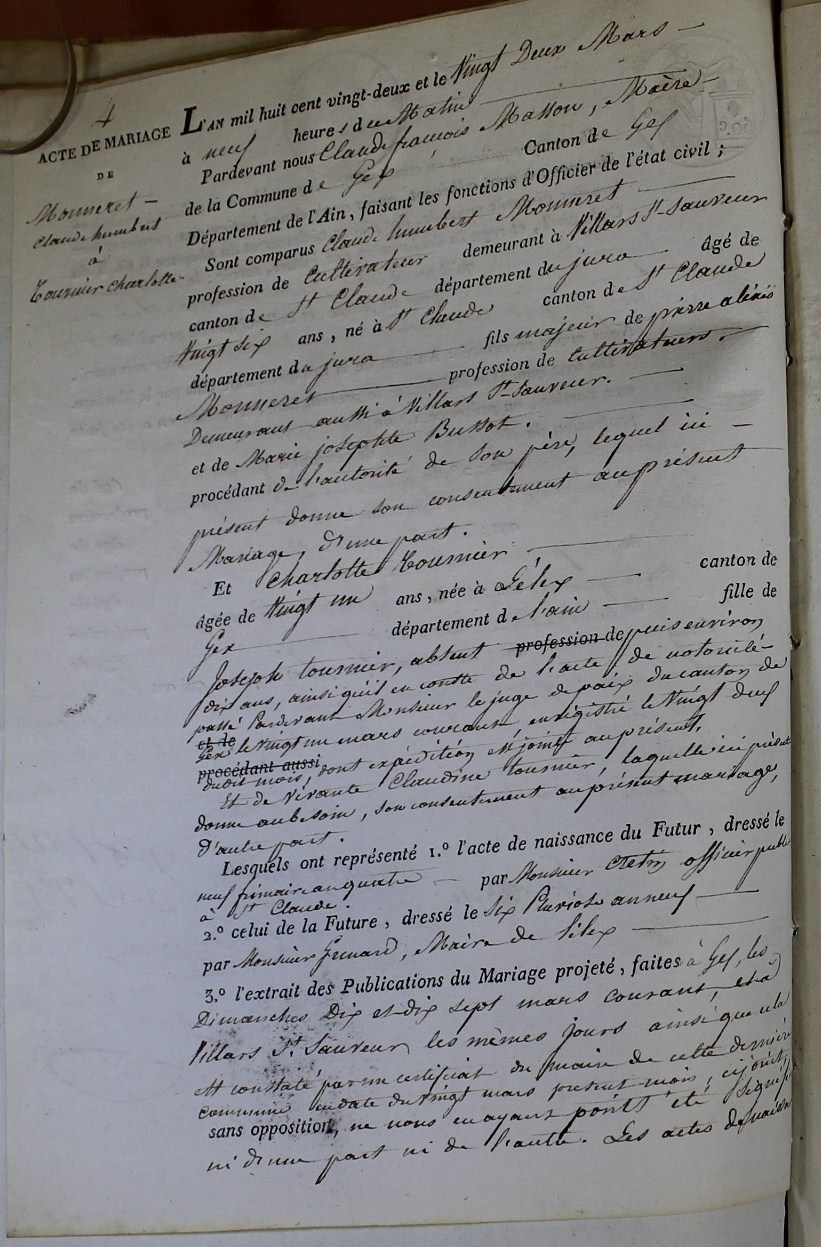 4
ACTE DE MARIAGE
DE
Monneret
Claude humbert
à
Tournier Charlotte
L'AN mil huit cent vingt-deux et le Vingt Deux Mars
à neuf heures du Matin
Pardevant nous Claude françois Masson, Maire
de la Commune de Gex Canton de Gex
Département de l'Ain, faisant les fonctions d'Officier de l'état civil ;
Sont comparus Claude humbert Monneret
profession de Cultivateur demeurant à Villars St. Sauveur
canton de St Claude département du jura âgé de
Vingt six ans, né à St Claude canton de St Claude
département du jura fils majeur de pierre alexis
Monneret profession de Cultivateur
Demeurant aussi à Villars St. Sauveur.
et de Marie josephte Bussot.
procédant de l'autorité de son père, lequel ici
présent donne son consentement au présent
Mariage, d'une part.
Et Charlotte Tournier
âgée de Vingt un ans, née à Lélex canton de
Gex département de l'ain fille de
Joseph tournier, absent profession de puis environ
dix ans, ainsi qu'il en conste de l'acte de notoriété
passé Pardevant Monsieur le juge de paix du canton de
et de
Gex le Vingt un mars courant enregistré le Vingt deux
procédant aussi
dudit mois, dont expédition est jointe au présent.
Et de Vivante Claudine tournier, laquelle ici présente
donne au besoin, son consentement au présent mariage,
d'autre part.
Lesquels ont représenté 1.º l'acte de naissance du Futur, dressé le
neuf frimaire an quatre par Monsieur officier public
à St Claude.
2.º celui de la Future, dressé le Six Pluviose an neuf
par Monsieur Grenard, Maire de Lélex
3.º l'extrait des Publications du Mariage projeté, faites à Gex, les
Dimanches Dix et dix sept mars courant, et à
Villars St. Sauveur les mêmes jours ainsi que cela
est constaté par un certificat du maire de cette dernière
commune en date du vingt mars présent mois, ci joint,
sans opposition, ne nous en ayant point été signifié
ni d'une part ni de l'autre. Les actes de naissance